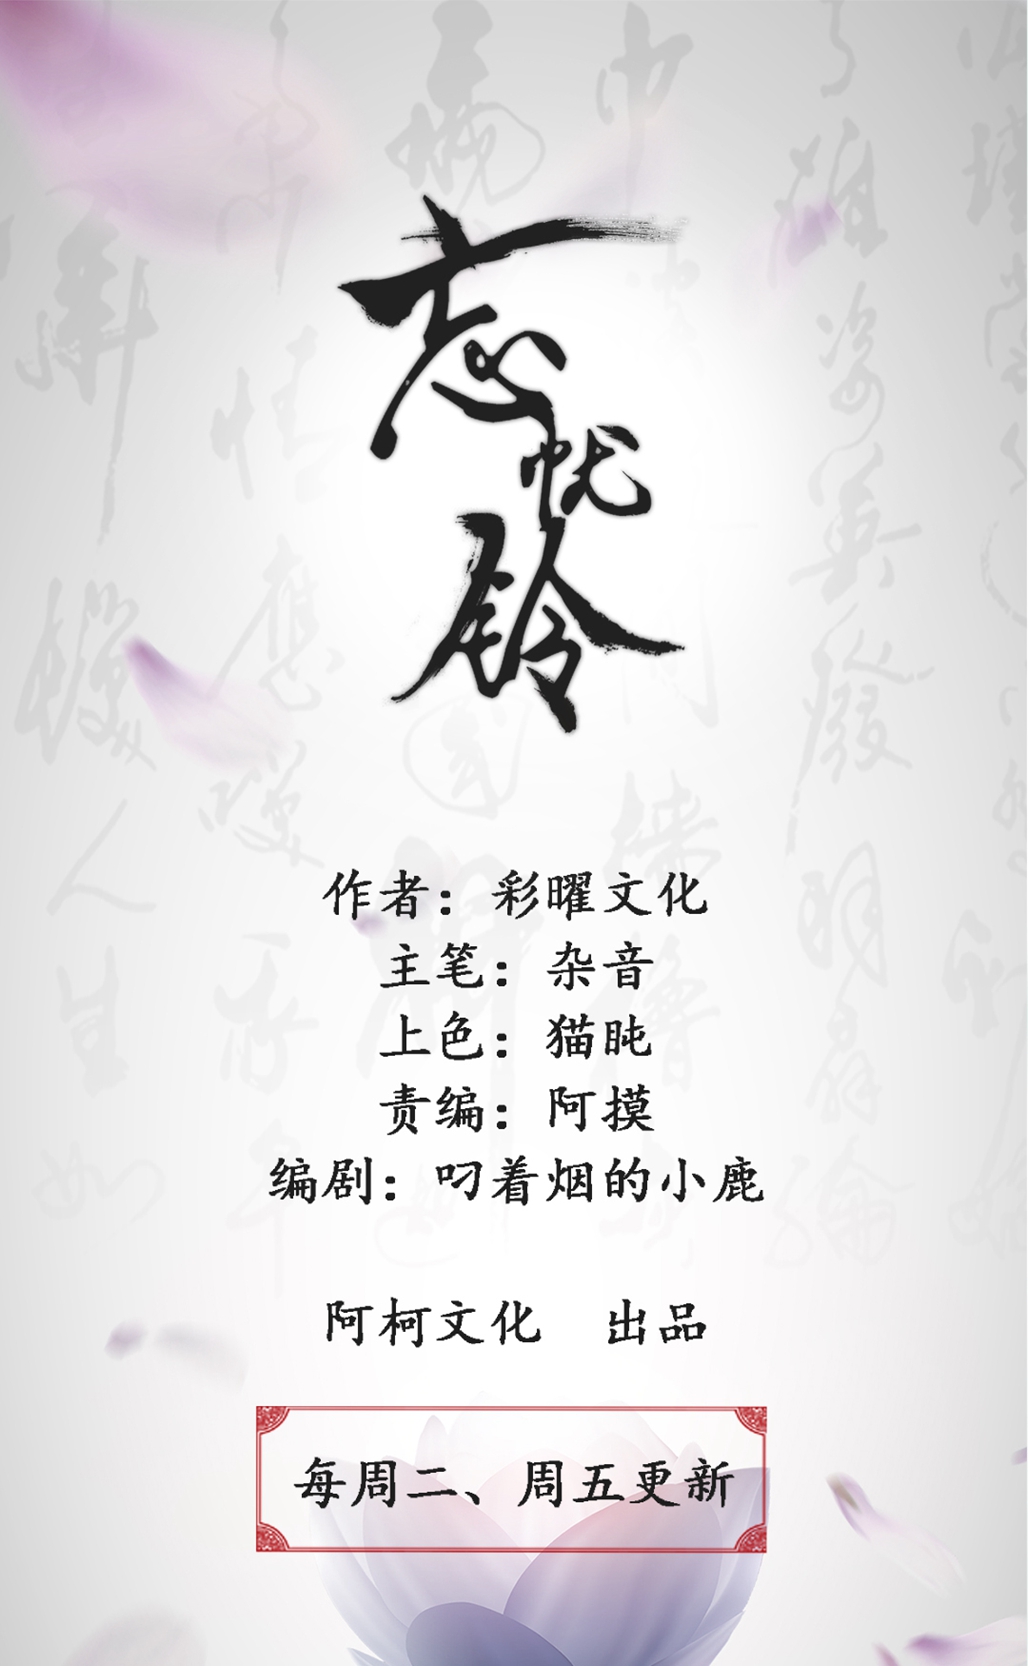 忘忧铃
作者：彩曜文化
主笔：杂音
上色：猫盹
责编：阿摸
编剧：叼着烟的小鹿
阿柯文化　出品
每周二、周五更新